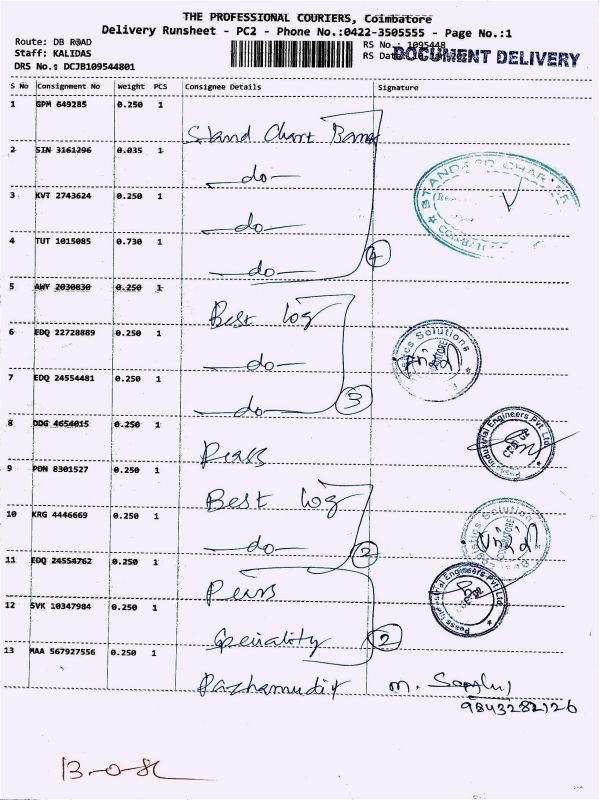 THE PROFESSIONAL COURIERS, Coimbatore
Delivery Runsheet - PC2 - Phone No.:0422-3505555 - Page No.:1
Route: DB ROAD
Staff: KALIDAS
DRS No.: DCJB109544801
RS No.: 1095448
RS Dat
DOCUMENT DELIVERY
S No Consignment No Weight PCS Consignee Details Signature
1 GPM 649285 0.250 1 Stand Chart Bank
2 SIN 3161296 0.035 1 -do-
3 KVT 2743624 0.250 1 -do-
4 TUT 1015085 0.730 1 -do- 4
5 AWY 2030830 0.250 1 Best Log
6 EDQ 22728889 0.250 1 -do-
7 EDQ 24554481 0.250 1 -do- 3
8 DDG 4654015 0.250 1 Peass
9 PON 8301527 0.250 1 Best Log
10 KRG 4446669 0.250 1 -do- 2
11 EDQ 24554762 0.250 1 Peass
12 SVK 10347984 0.250 1 Speciality 2
13 MAA 567927556 0.250 1 Pazhamudir
9843282126
STANDARD CHARTE
COIMBAT
Solutions
Peass Industrial Engineers Pvt Ltd
CBE
Solution
Industrial Engineers Pvt Ltd
13-0-8